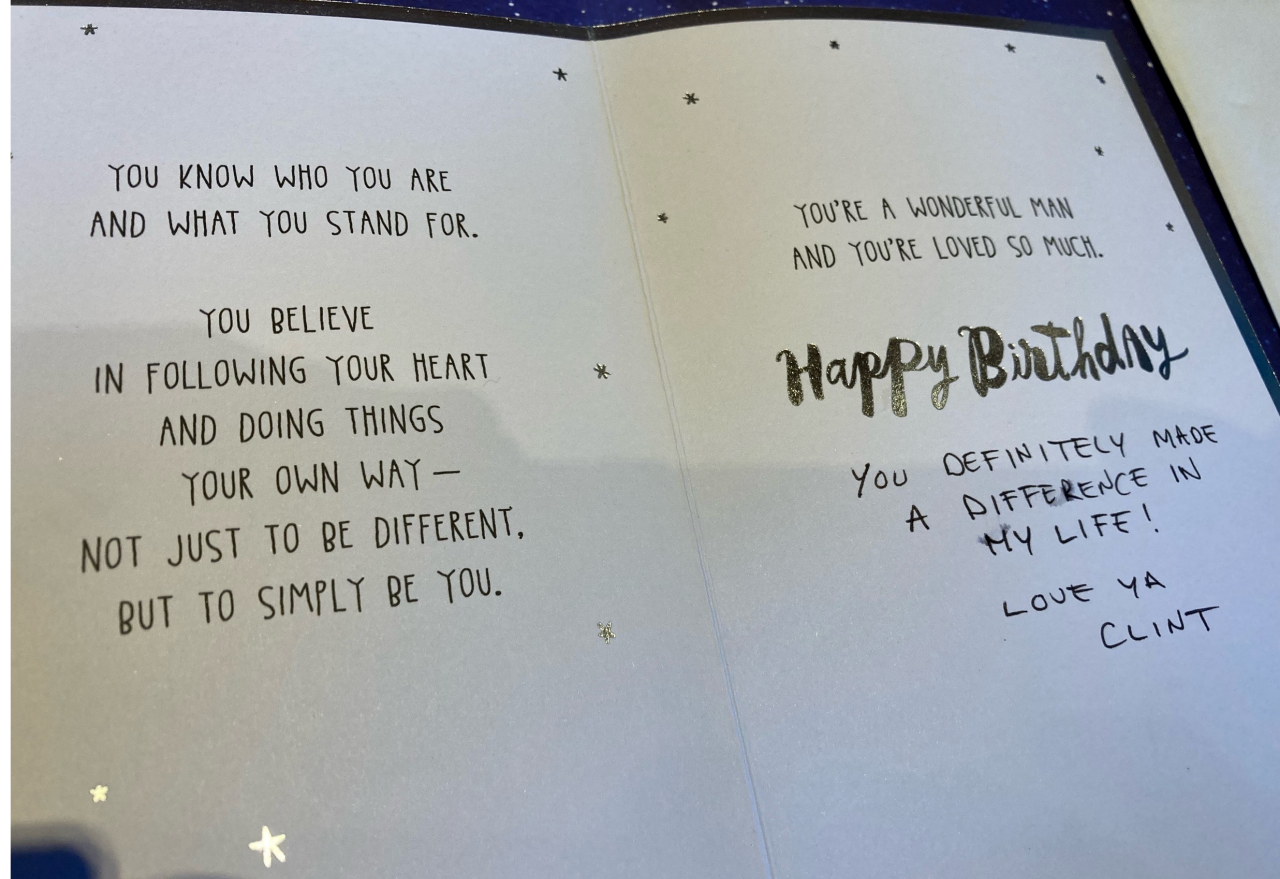 YOU KNOW WHO YOU ARE
AND WHAT YOU STAND FOR.
YOU BELIEVE
IN FOLLOWING YOUR HEART
AND DOING THINGS
YOUR OWN WAY —
NOT JUST TO BE DIFFERENT,
BUT TO SIMPLY BE YOU.
YOU'RE A WONDERFUL MAN
AND YOU'RE LOVED SO MUCH.
Happy Birthday
YOU DEFINITELY MADE
A DIFFERENCE IN
MY LIFE!
LOVE YA
CLINT